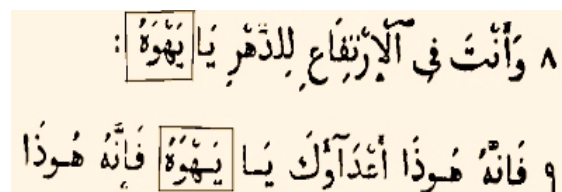 ٨ وَأَنْتَ فِي ٱلْإِرْتِفَاعِ لِلدَّهْرِ يَا يَهْوَهُ :
٩ فَإِنَّهُ هُوذَا أَعْدَآؤُكَ يَا يَهْوَهُ فَإِنَّهُ هُوذَا